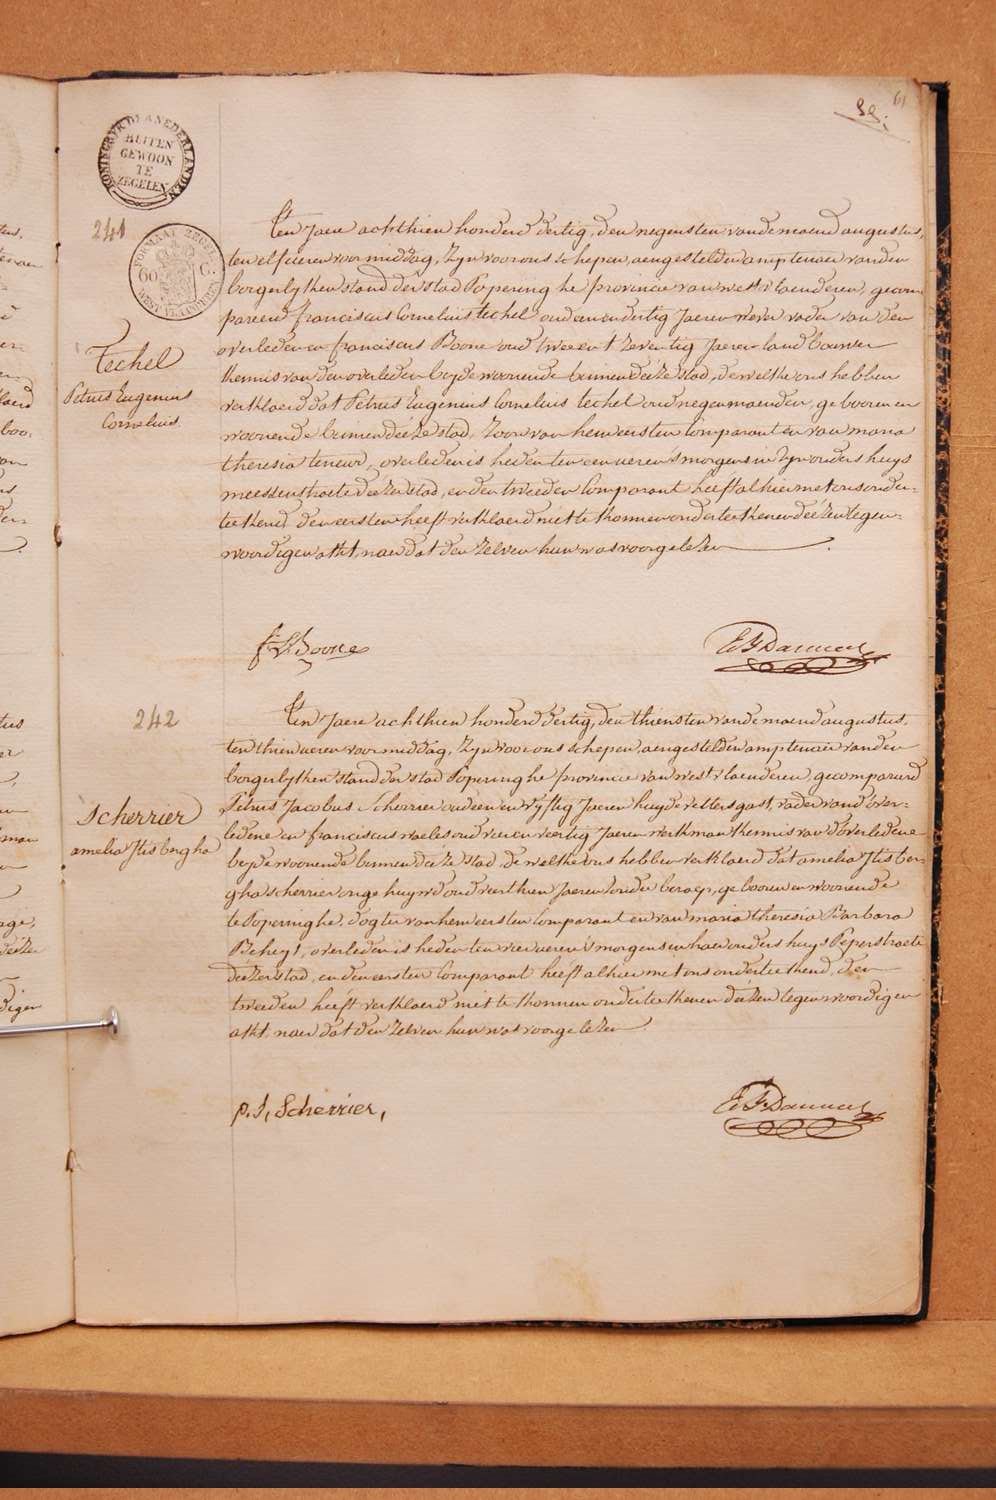 61
33.
KONINGRYK DER NEDERLANDEN
BUITEN
GEWOON
TE
ZEGELEN
241
FORMAAT ZEGEL
60 C.
WEST VLAANDEREN
Techel
Petrus Eugenius
Cornelius
Ten Jaere achthien honderd dertig, den negensten van de maend augustus,
ten elf ueren voormiddag, Zyn voor ons schepen, aengestelden amptenaer van den
borgerlyken stand der stad Poperinghe provincie van westvlaenderen, gecom-
pareerd franciscus Cornelius techel oud een en dertig Jaeren wever vader van den
overledenen en franciscus Boone oud twee en t zeventig Jaeren landbouwer
kennis van den overleden beyde woonende binnen deéze stad, de welke ons hebben
verklaerd dat Petrus Eugenius Cornelius techel oud negen maenden, gebooren en
woonende binnen deeze stad, Zoon van hem eersten Comparant en van maria
theresia teneur, overleden is heden ten een ueren s'morgens in Zyn ouders huys
meessenstraete deézer stad, en den tweeden Comparant heeft alhier met ons onder-
teekend den eersten heeft verklaerd niet te konnen onderteekenen deézen tegen-
woordigen akt, naer dat den Zelven hun was voorgelezen
f: L: Boone
242
Scherrier
amelia Itisbergha
Ten Jaere achthien honderd dertig, den thiensten van de maend augustus,
ten thien ueren voormiddag, Zyn voor ons schepen, aengestelden amptenaer van den
borgerlyken stand der stad Poperinghe provincie van westvlaenderen, gecompareerd
Petrus Jacobus Scherrier oud een en vyftig Jaeren huydevettersgast, vader van d'over-
ledene en franciscus waeles oud vier en veertig Jaeren werkman kennis van d'overledene
beyde woonende binnen deéze stad, de welke ons hebben verklaerd dat amelia Itisber-
gha scherrier onge huywd oud veerthien Jaeren Zonder beroep, gebooren en woonende
te Poperinghe, dogter van hem eersten Comparant en van maria theresia Barbara
Beheyt, overleden is heden ten vier ueren s'morgens in haer ouders huys Peperstraete
deézer stad, en den eersten Comparant heeft alhier met ons onderteekend, den
tweeden heeft verklaerd niet te konnen onderteekenen deézen tegenwoordigen
akt, naer dat den Zelven hun was voorgelezen.
p. J, Scherrier,